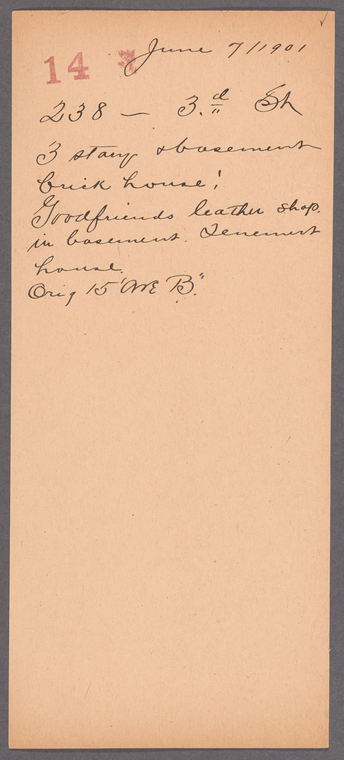 14 June 7/1901
238 — 3.d St
3 story & basement
brick house;
Goodfriends leather shop.
in basement. Tenement
house.
Orig 15 "Ave B."